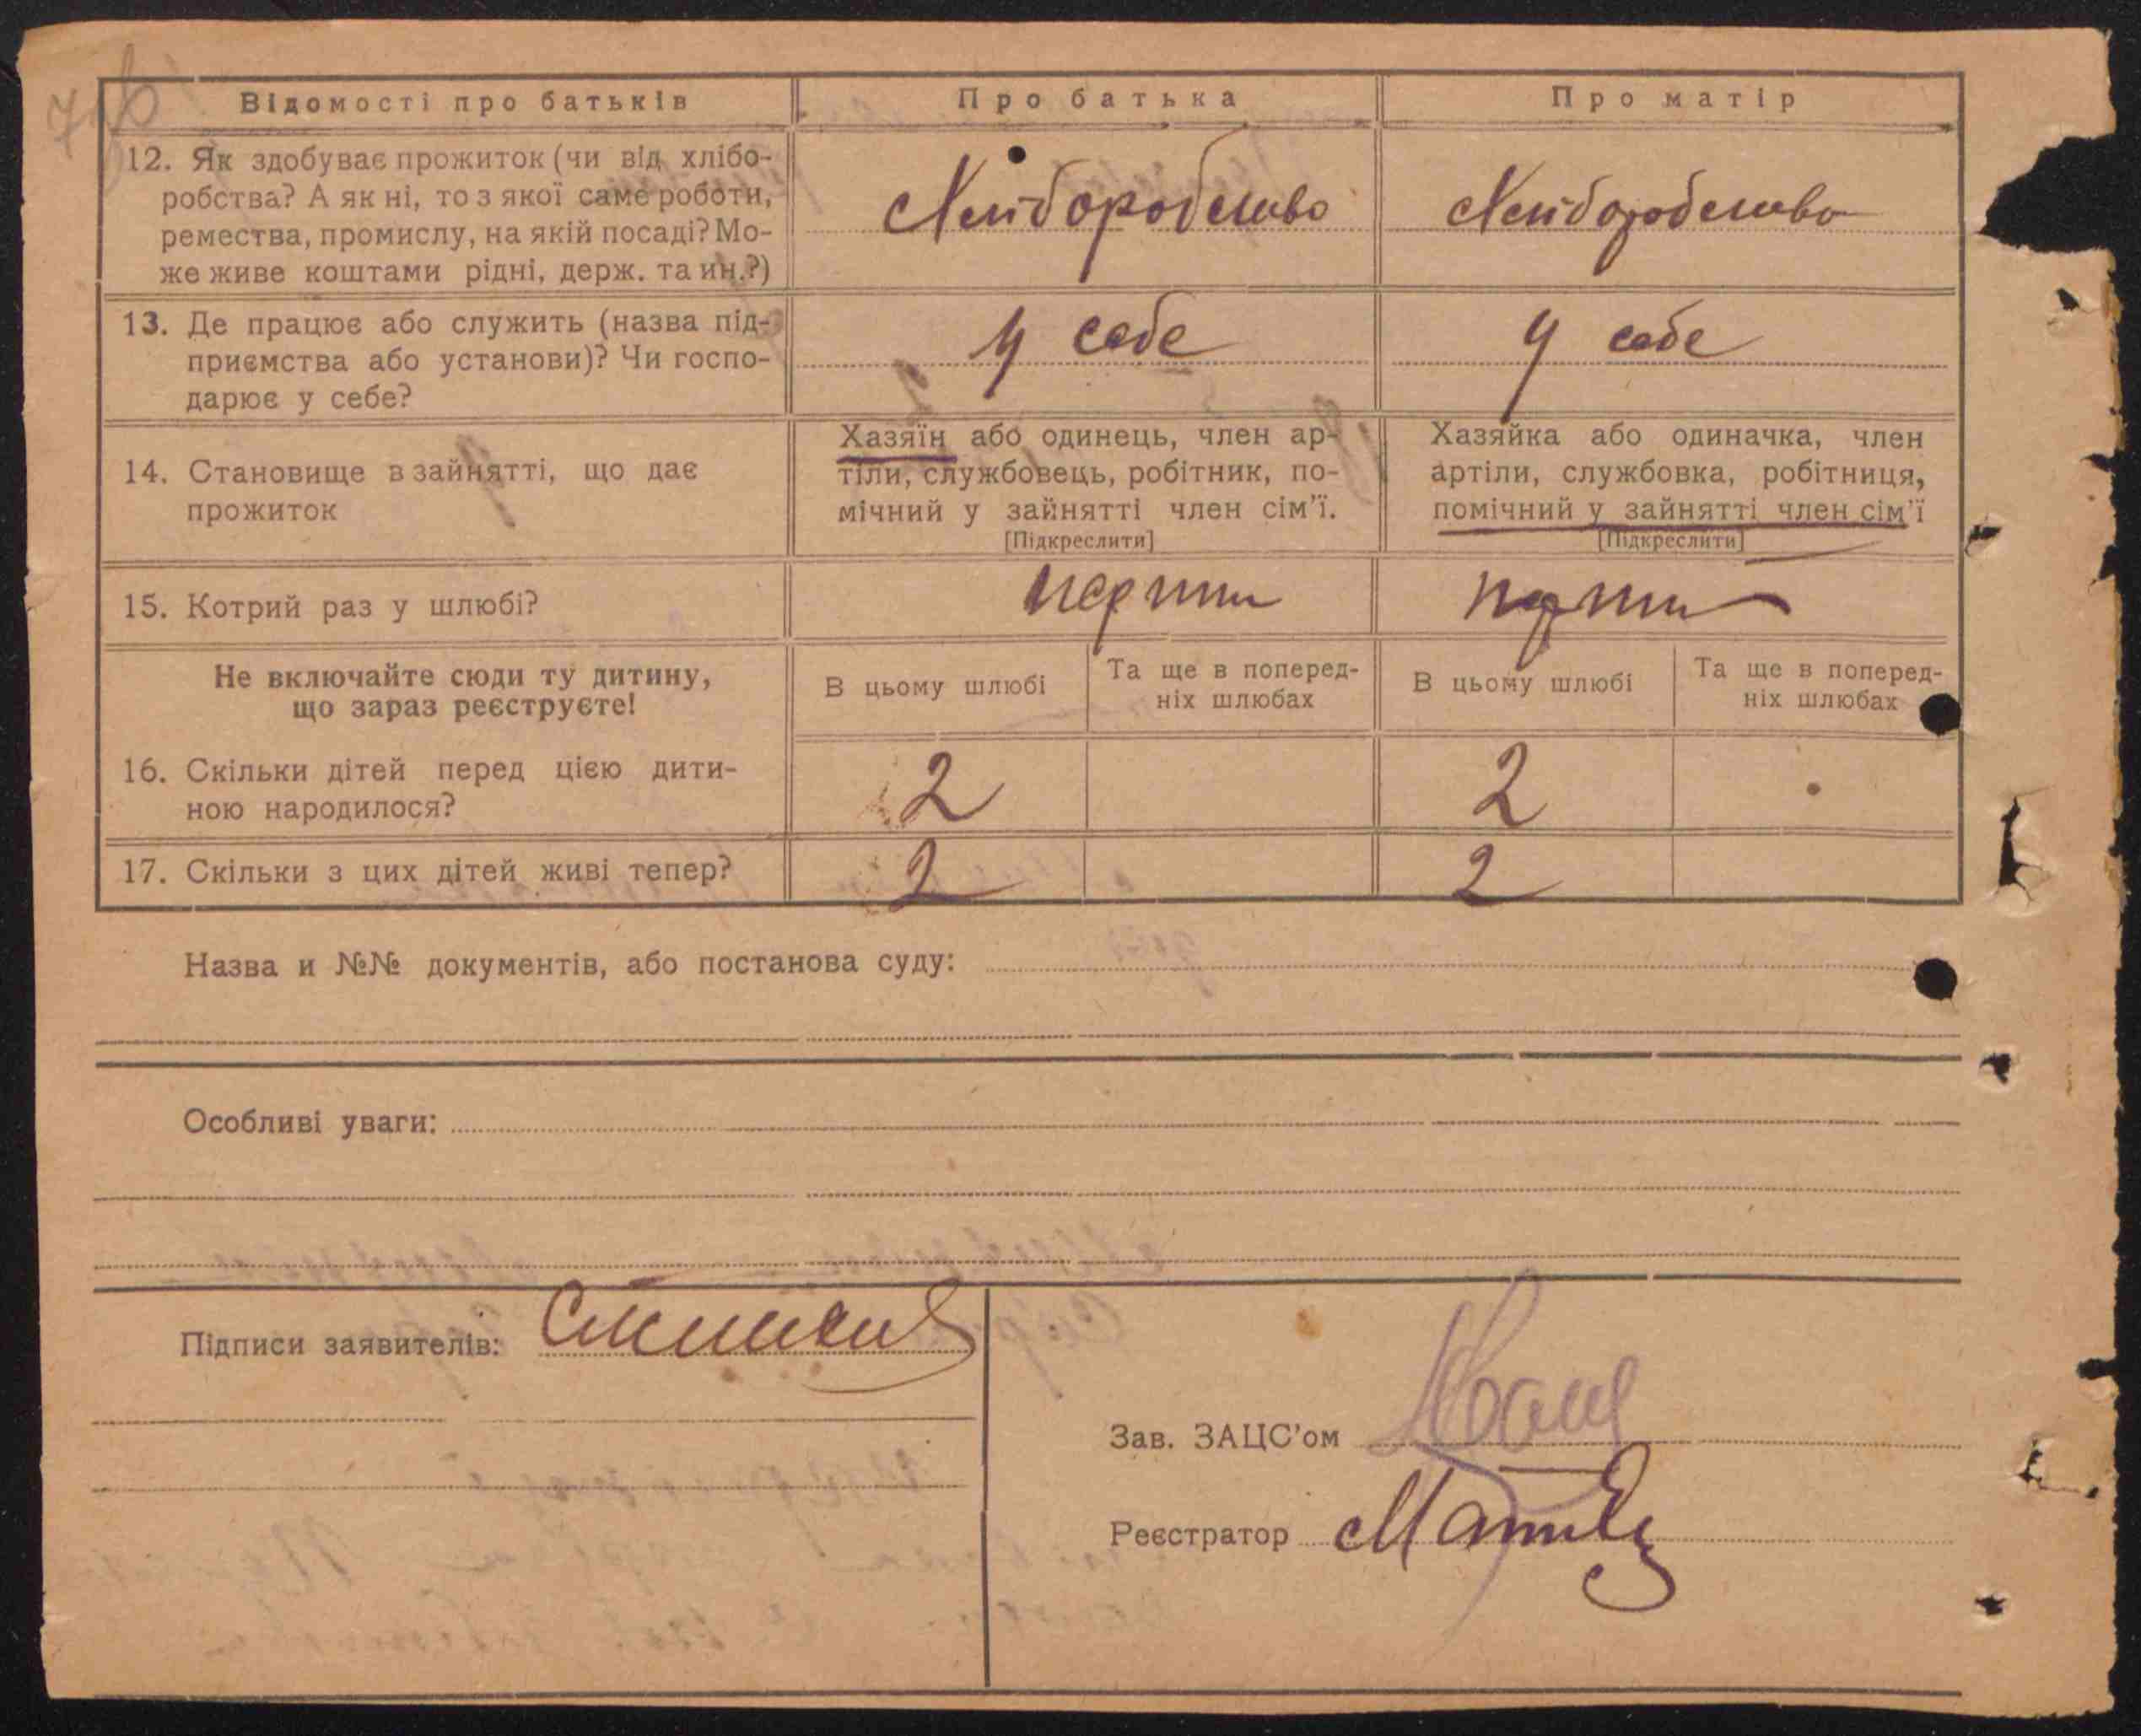 Відомості про батьків
Про батька
Про матір
12. Як здобуває прожиток (чи від хлібо-
робства? А як ні, то з якої саме роботи,
ремества, промислу, на якій посаді? Мо-
же живе коштами рідні, держ. та ин.?)
Хліборобство
Хліборобство
13. Де працює або служить (назва під-
приємства або установи)? Чи госпо-
дарює у себе?
У себе
У себе
14. Становище в зайнятті, що дає
прожиток
Хазяїн або одинець, член ар-
тіли, службовець, робітник, по-
мічний у зайнятті член сім'ї.
[Підкреслити]
Хазяйка або одиначка, член
артіли, службовка, робітниця,
помічний у зайнятті член сім'ї
[Підкреслити]
15. Котрий раз у шлюбі?
Не включайте сюди ту дитину,
що зараз реєструєте!
В цьому шлюбі
Та ще в поперед-
ніх шлюбах
В цьому шлюбі
Та ще в поперед-
ніх шлюбах
16. Скільки дітей перед цією дити-
ною народилося?
2
2
17. Скільки з цих дітей живі тепер?
2
2
Назва и №№ документів, або постанова суду:
Особливі уваги:
Підписи заявителів:
Зав. ЗАЦС'ом
Реєстратор